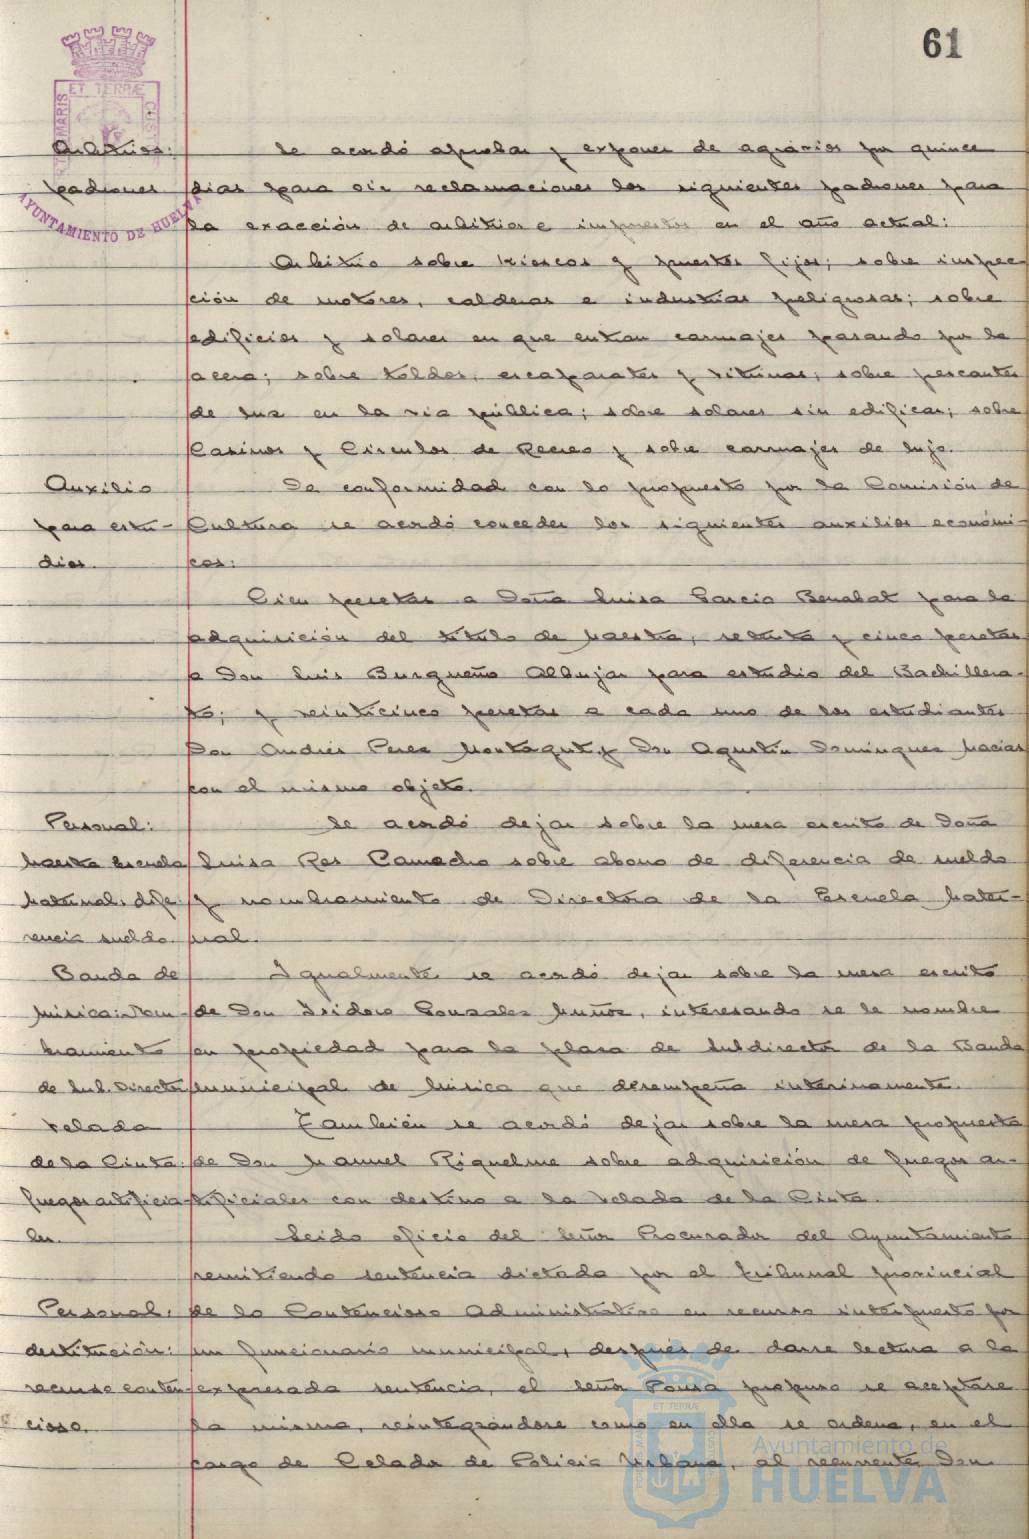 61
ET TERRÆ
MARIS
AYUNTAMIENTO DE HUELVA
Arbitrios: Se acordó aprobar y exponer de agravios por quince
padrones días para oir reclamaciones los siguientes padrones para
la exacción de arbitrios e impuestos en el año actual:
Arbitrio sobre kioscos y puestos fijos; sobre inspec
ción de motores, calderas e industrias peligrosas; sobre
edificios y solares en que entran carruajes pasando por la
acera; sobre toldos, escaparates y vitrinas; sobre pescantes
de luz en la vía pública; sobre solares sin edificar; sobre
Casinos y Circulos de Recreo y sobre carruajes de lujo.
Auxilio De conformidad con lo propuesto por la Comisión de
para estu- Cultura se acordó conceder los siguientes auxilios económi-
dios. cos:
Cien pesetas a Doña Luisa Garcia Benabat para la
adquisición del título de Maestra, setenta y cinco pesetas
a Don Luis Burgueño Albujar para estudio del Bachillera-
to; y veinticinco pesetas a cada uno de los estudiantes
Don Andrés Perez Montagut y Don Agustin Dominguez Macias
con el mismo objeto.
Personal: Se acordó dejar sobre la mesa escrito de Doña
Maestra Escuela Luisa Ros Camacho sobre abono de diferencia de sueldo
Maternal: dife y nombramiento de Directora de la Escuela Mater-
rencia sueldo. nal.
Banda de Igualmente se acordó dejar sobre la mesa escrito
Música: Nom- de Don Isidoro Gonzalez Muñoz, interesando se le nombre
bramiento en propiedad para la plaza de Subdirector de la Banda
de Sub. Director Municipal de Música que desempeña interinamente.
Velada También se acordó dejar sobre la mesa propuesta
de la Cinta: de Don Manuel Riquelme sobre adquisición de fuegos ar-
fuegos artificia- tificiales con destino a la Velada de la Cinta.
les. Leido oficio del Señor Procurador del Ayuntamiento
remitiendo sentencia dictada por el tribunal provincial
Personal: de lo Contencioso Administrativo en recurso interpuesto por
destitución: un funcionario municipal, después de darse lectura a la
recurso conten- expresada sentencia, el Señor Pousa propuso se aceptase
cioso. la misma, reintegrándose como en ella se ordena, en el
cargo de Celador de Policia Urbana, al recurrente Don
ET TERRA
Ayuntamiento de
HUELVA